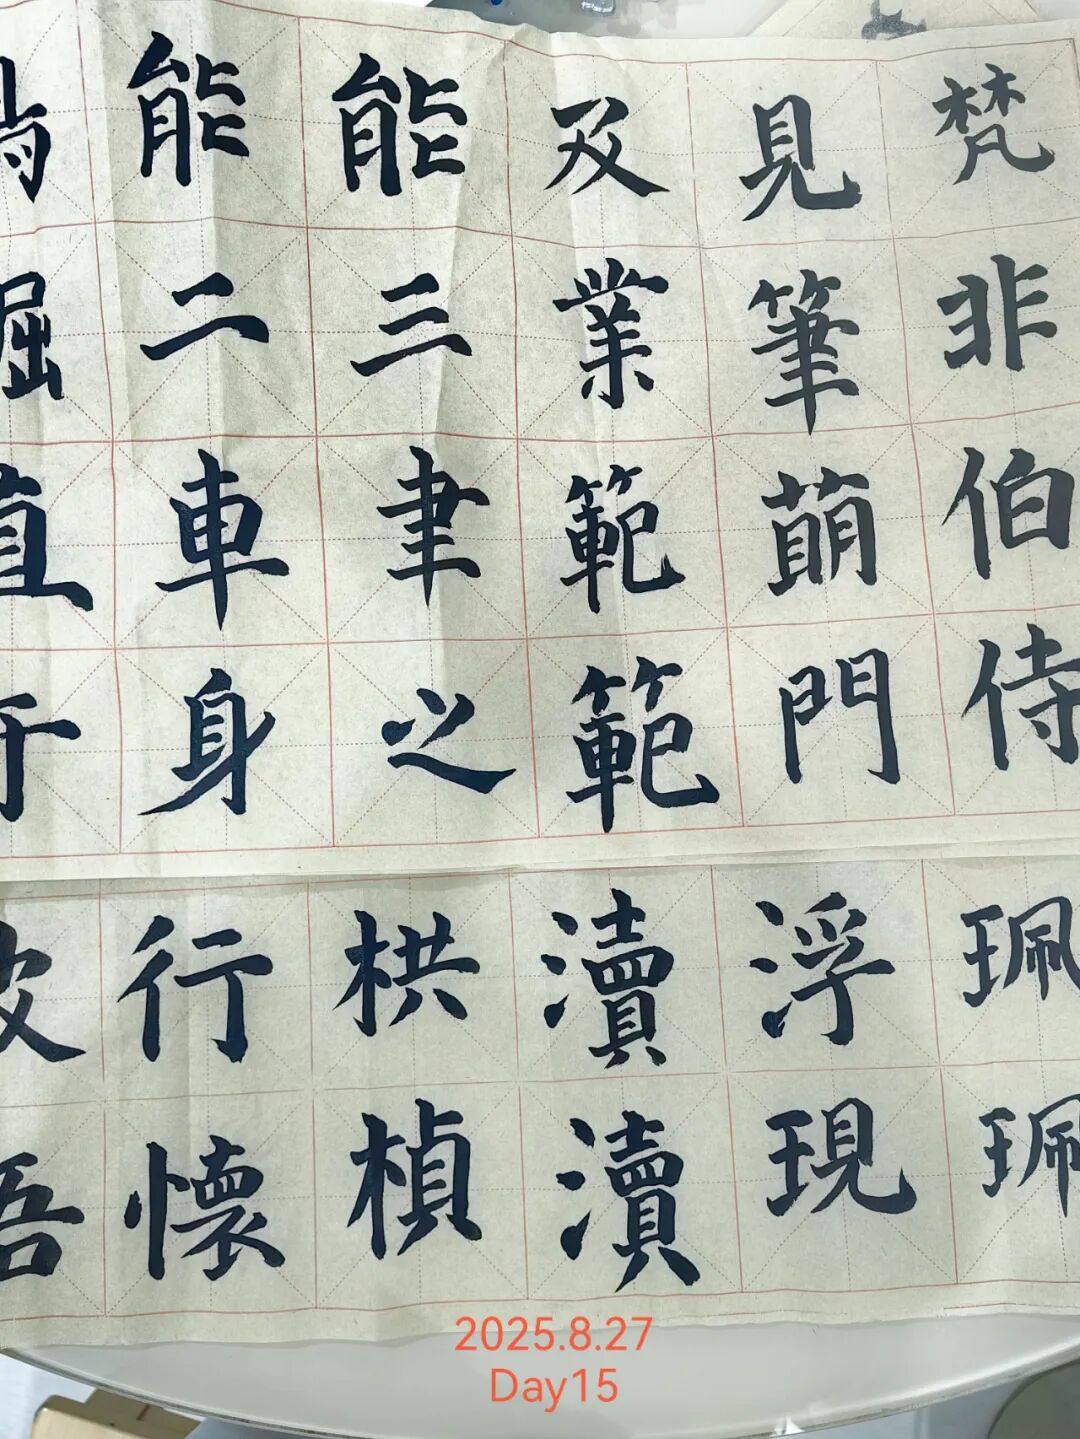 梵非伯侍
見筆萌門
及業範範
能三聿之
能二車身
珮珮
浮現
瀆瀆
栱楨
行懷
2025.8.27
Day15